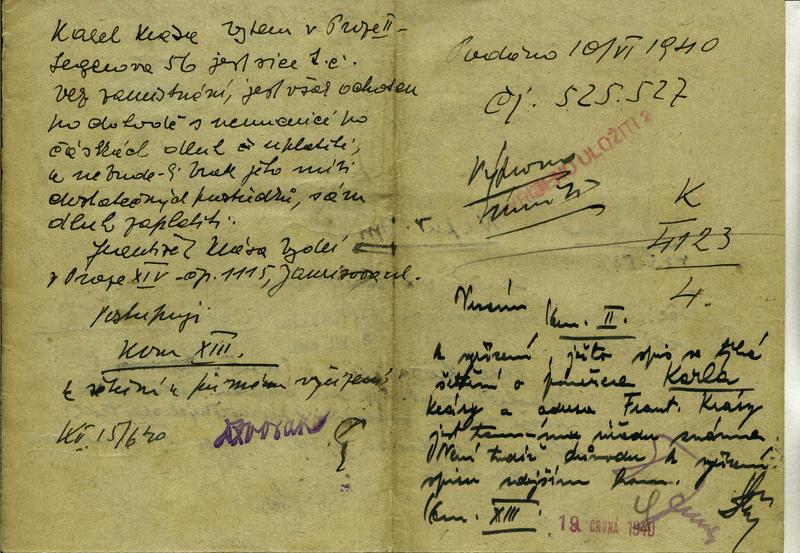 Karel Krása bytem v Praze II-
Legerova 56 jest sice t.č.
bez zaměstnání, jest však ochoten
po dohodě s nemocnicí po
částkách dluh uplatiti,
a nebude-li brat jeho míti
dostatečných prostředků, sám
dluh zaplatiti.
František Krása bydlí
v Praze XIV - čp. 1115,
Postupuji
Kom XIII.
k přímému vyřízení
15/6 40
Dvořák
Podáno 10/VI 1940
Čj. 525.527
ULOŽITI
K
4123
4.
Vracím
Kom. II.
k vyřízení, ježto spis se týká
šetření o poměrech Karla
Krásy a adresa Frant. Krásy
jest tamnímu úřadu známa.
Není tudíž důvodu k vyřízení
spisu zdejším kom.
Kom. XIII.
19. ČRVNA 1940